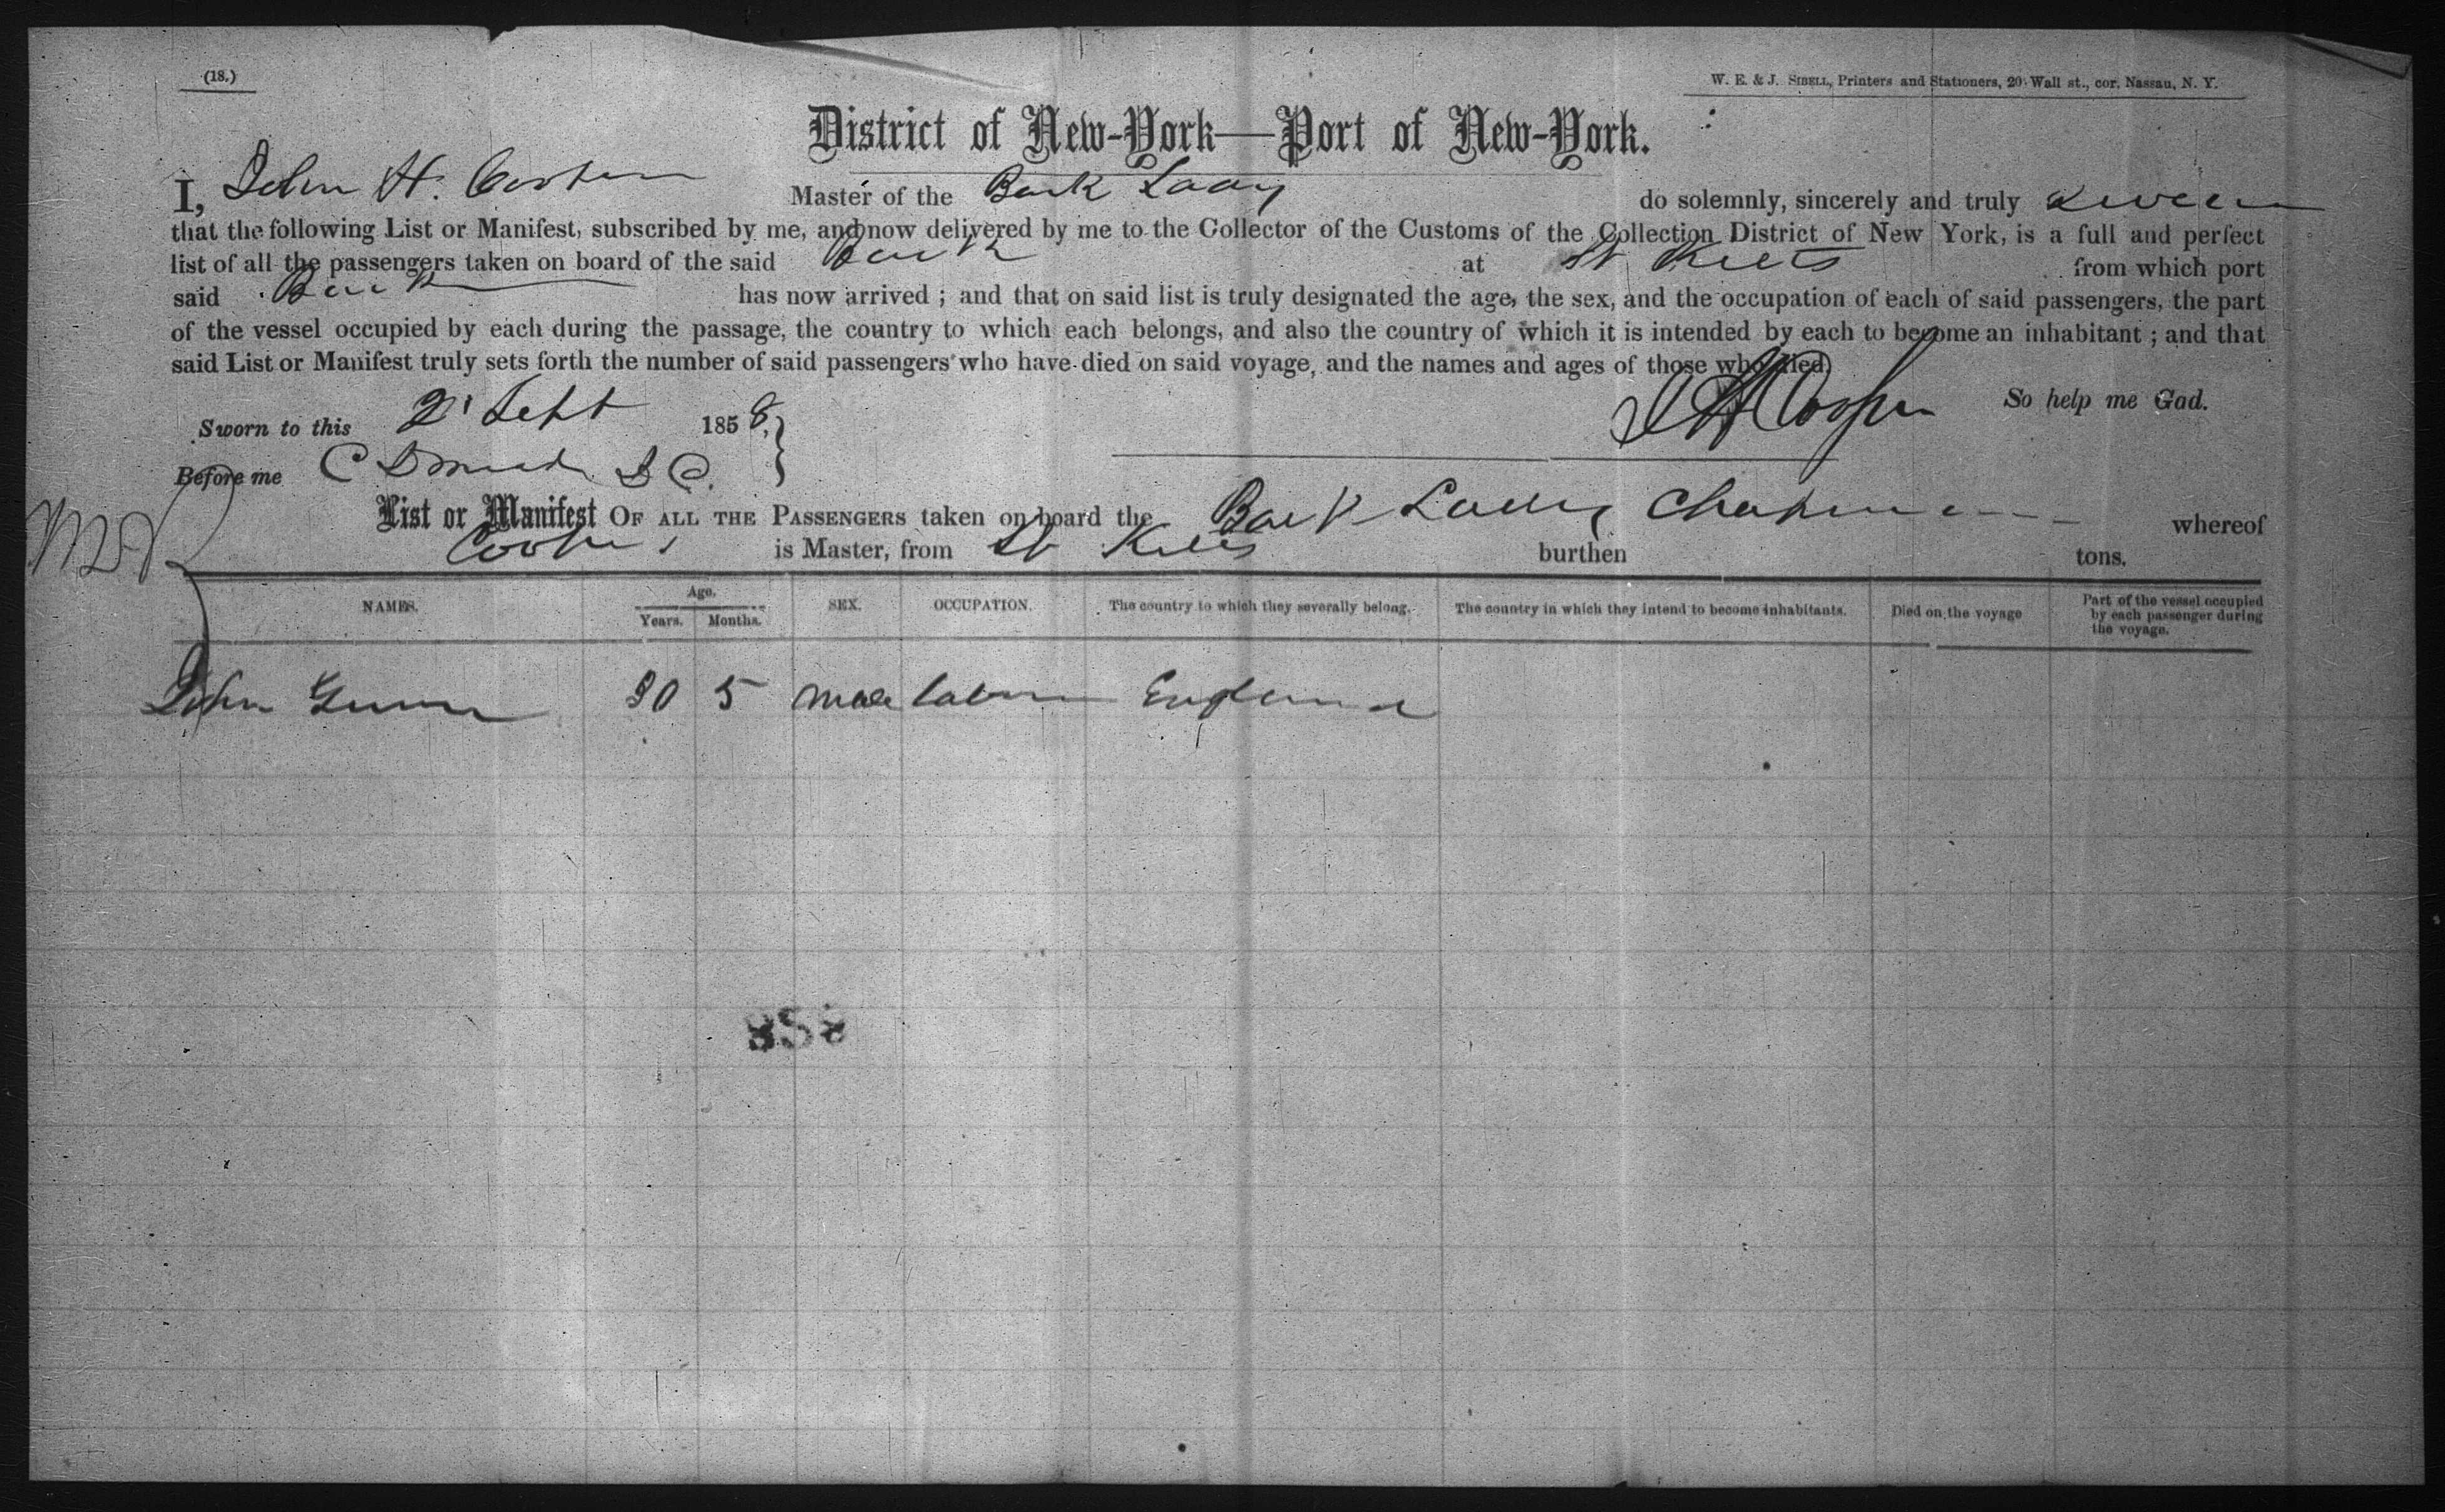 (18.)
W. E. & J. SIBELL, Printers and Stationers, 20 Wall st., cor. Nassau, N. Y.
District of New-York—Port of New-York.
I, John H. Cooper Master of the Bark Lady do solemnly, sincerely and truly swear
that the following List or Manifest, subscribed by me, and now delivered by me to the Collector of the Customs of the Collection District of New York, is a full and perfect
list of all the passengers taken on board of the said Bark at St Kitts from which port
said Bark has now arrived ; and that on said list is truly designated the age, the sex, and the occupation of each of said passengers, the part
of the vessel occupied by each during the passage, the country to which each belongs, and also the country of which it is intended by each to become an inhabitant ; and that
said List or Manifest truly sets forth the number of said passengers who have died on said voyage, and the names and ages of those who died.
J H Cooper So help me God.
Sworn to this 2' Sept 1858,
Before me C D D C.
List or Manifest OF ALL THE PASSENGERS taken on board the Bark Lady Chapman whereof
Cooper is Master, from St Kitts burthen tons.
NAMES. Age. Years. Months. SEX. OCCUPATION. The country to which they severally belong. The country in which they intend to become inhabitants. Died on the voyage Part of the vessel occupied by each passenger during the voyage.
John Gunn 30 5 male labor England
858